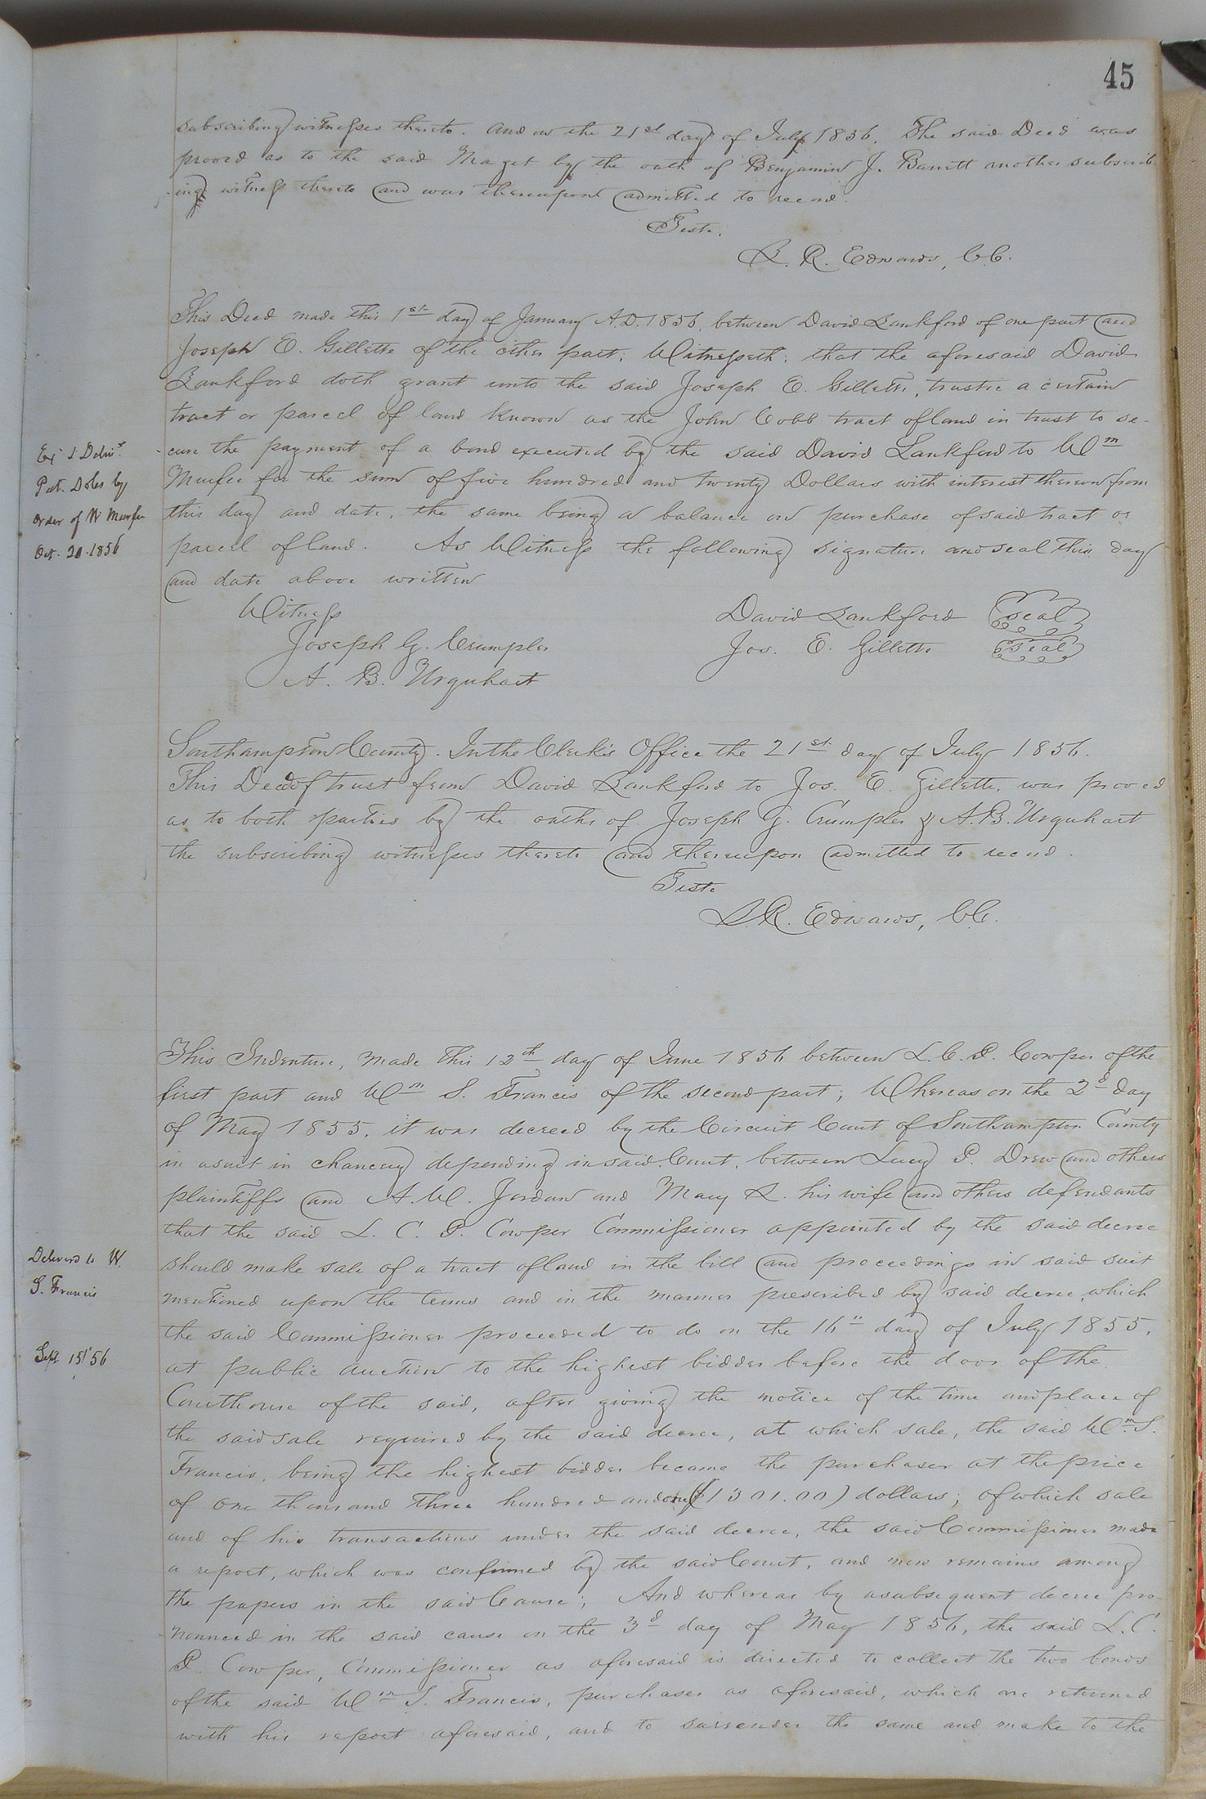 45
subscribing witnesses thereto. And on the 21st day of July 1856. The said Deed was
proved as to the said Maget by the oath of Benjamin J. Barrett another subscrib
ing witness thereto and was thereupon admitted to record.
Teste.
L. R. Edwards, C.C.
This Deed made this 1st day of January A.D. 1856, between David Lankford of one part and
Joseph E. Gillette of the other part; Witnesseth, that the aforesaid David
Lankford doth grant unto the said Joseph E. Gillette, trustee a certain
tract or parcel of land known as the John Cobb tract of land in trust to se-
cure the payment of a bond executed by the said David Lankford to Wm
Murfee for the sum of five hundred and twenty Dollars with interest thereon from
this day and date, the same being a balance on purchase of said tract or
parcel of land. As Witness the following signature and seal this day
and date above written
Ex'd & Deliv'd
Pat. Doles by
order of W Murfee
Oct. 20. 1856
Witness
Joseph G. Crumpler
A. B. Urquhart
David Lankford Seal
Jos. E. Gillette Seal
Southampton County. In the Clerk's Office the 21st day of July 1856.
This Deed of trust from David Lankford to Jos. E. Gillette, was proved
as to both parties by the oaths of Joseph G. Crumpler & A. B. Urquhart
the subscribing witnesses thereto and thereupon admitted to record.
Teste
L. R. Edwards, C.C.
This Indenture, made this 12th day of June 1856 between L. C. P. Cowper of the
first part and Wm S. Francis of the second part; Whereas on the 2d day
of May 1855, it was decreed by the Circuit Court of Southampton County
in a suit in chancery depending in said Court, between Lucy P. Drew and others
plaintiffs and A. W. Jordan and Mary R. his wife and others defendants
that the said L. C. P. Cowper Commissioner appointed by the said decree
should make sale of a tract of land in the bill and proceedings in said suit
mentioned upon the terms and in the manner prescribed by said decree, which
the said Commissioner proceeded to do on the 16th day of July 1855,
at public auction to the highest bidder before the door of the
Courthouse of the said, after giving the notice of the time and place of
the said sale required by the said decree, at which sale, the said Wm S.
Francis, being the highest bidder became the purchaser at the price
of one thousand three hundred and one ($1301.00) dollars; of which sale
and of his transactions under the said decree, the said Commissioner made
a report, which was confirmed by the said Court, and now remains among
the papers in the said Cause; And whereas by a subsequent decree pro-
nounced in the said cause on the 3d day of May 1856, the said L. C.
P. Cowper, Commissioner as aforesaid is directed to collect the two bonds
of the said Wm S. Francis, purchaser as aforesaid, which are returned
with his report aforesaid, and to surrender the same and make to the
Delivered to W.
S. Francis
Sept 15' 56